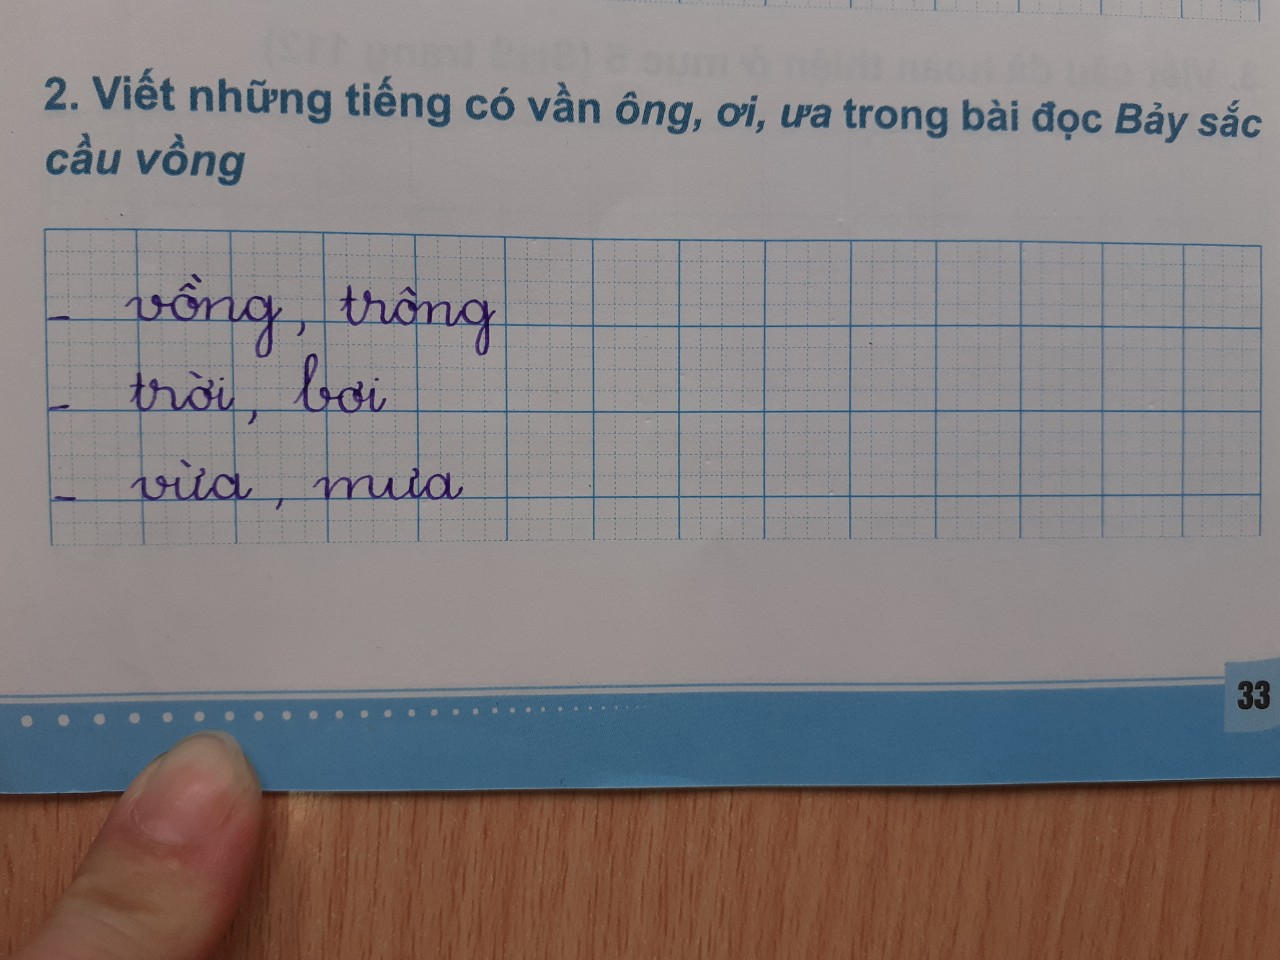 2. Viết những tiếng có vần ông, ơi, ưa trong bài đọc Bảy sắc
cầu vồng
- vồng, trông
- trời, bơi
- vừa, mưa
33